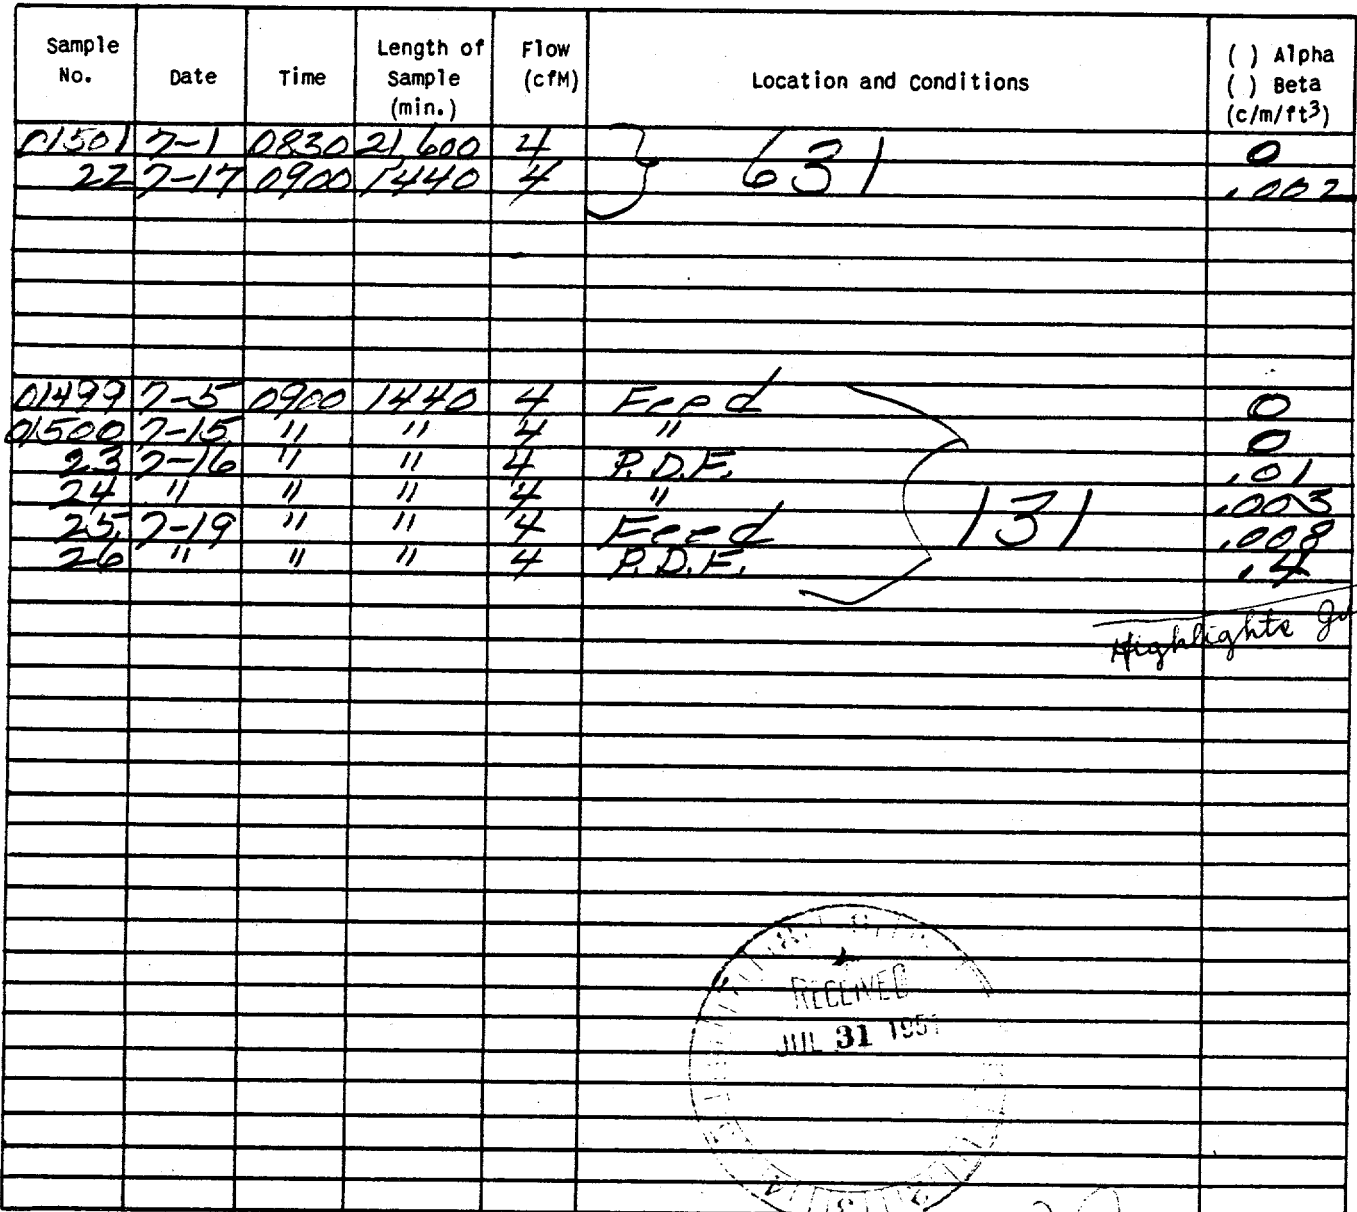 Sample No. | Date | Time | Length of Sample (min.) | Flow (cfM) | Location and Conditions | ( ) Alpha ( ) Beta (c/m/ft³)
01501 | 7-1 | 0830 | 21,600 | 4 | } 631 | 0
22 | 7-17 | 0900 | 1440 | 4 | | .002
01499 | 7-5 | 0900 | 1440 | 4 | Feed | 0
01500 | 7-15 | " | " | 4 | " | 0
23 | 7-16 | " | " | 4 | P.D.F. | .01
24 | " | " | " | 4 | " | .003
131
25 | 7-19 | " | " | 4 | Feed | .008
26 | " | " | " | 4 | P.D.F. | .4
Highlights
RECEIVED
JUL 31 195